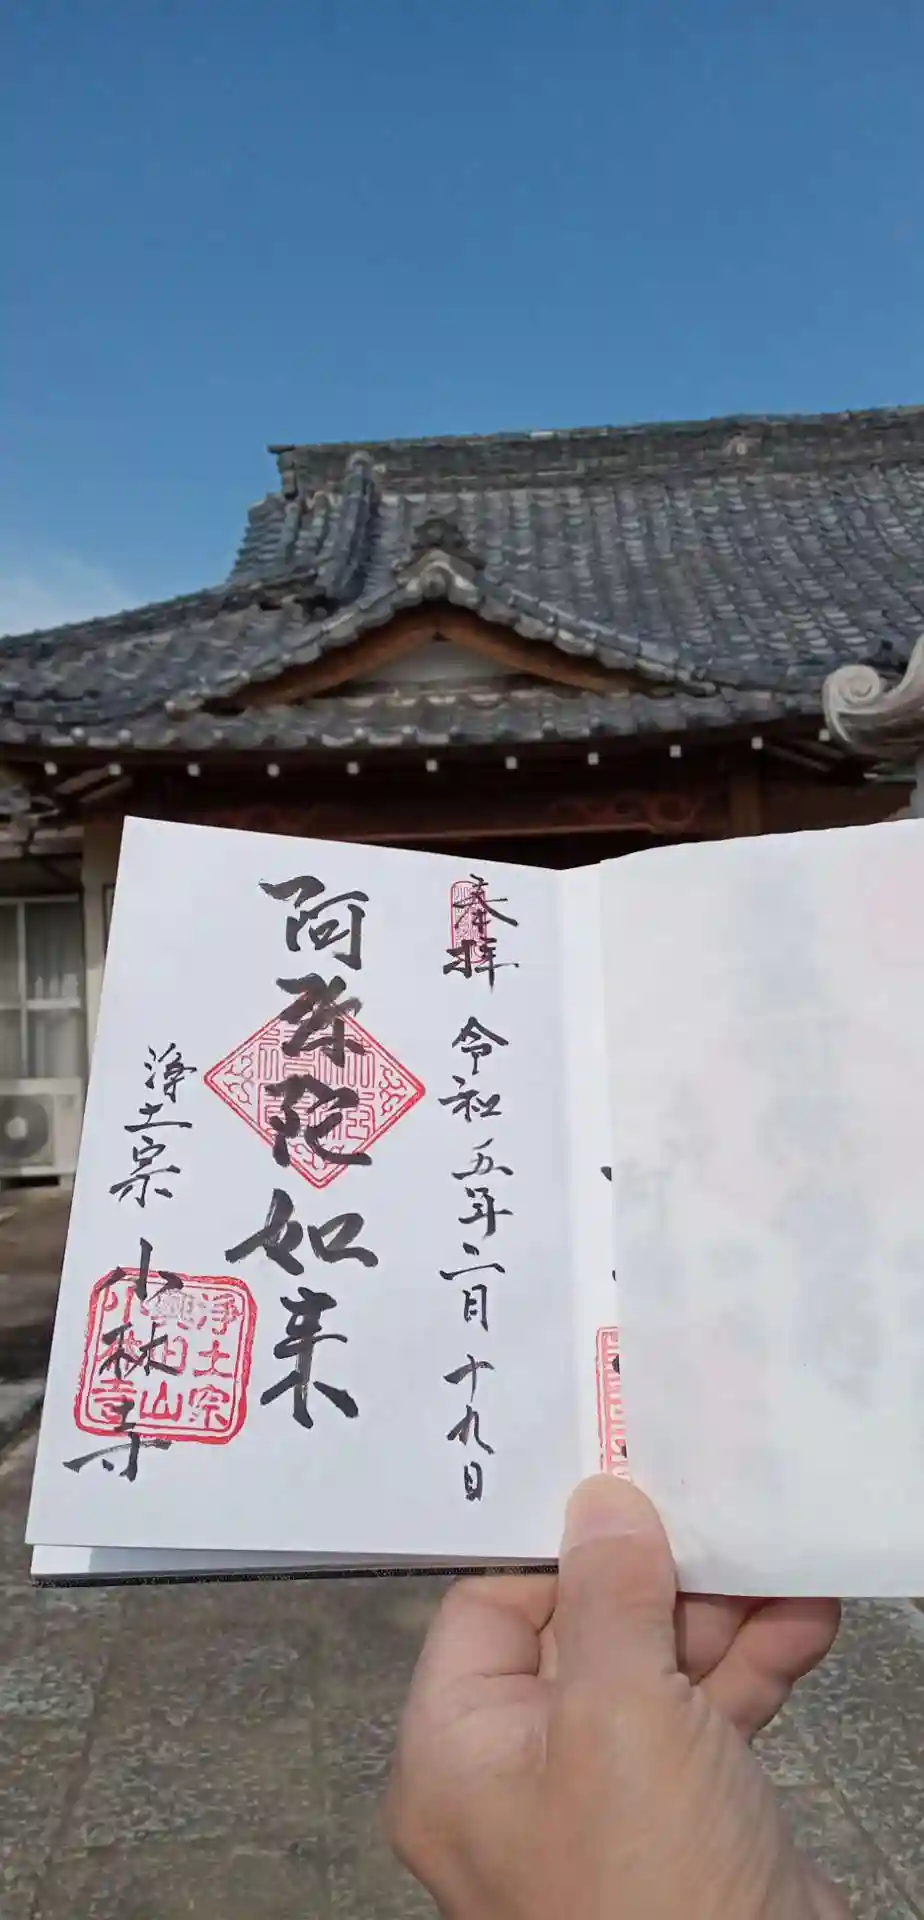 奉拝 令和五年二月十九日
阿弥陀如来
浄土宗 小林寺
浄土宗
山
小林寺